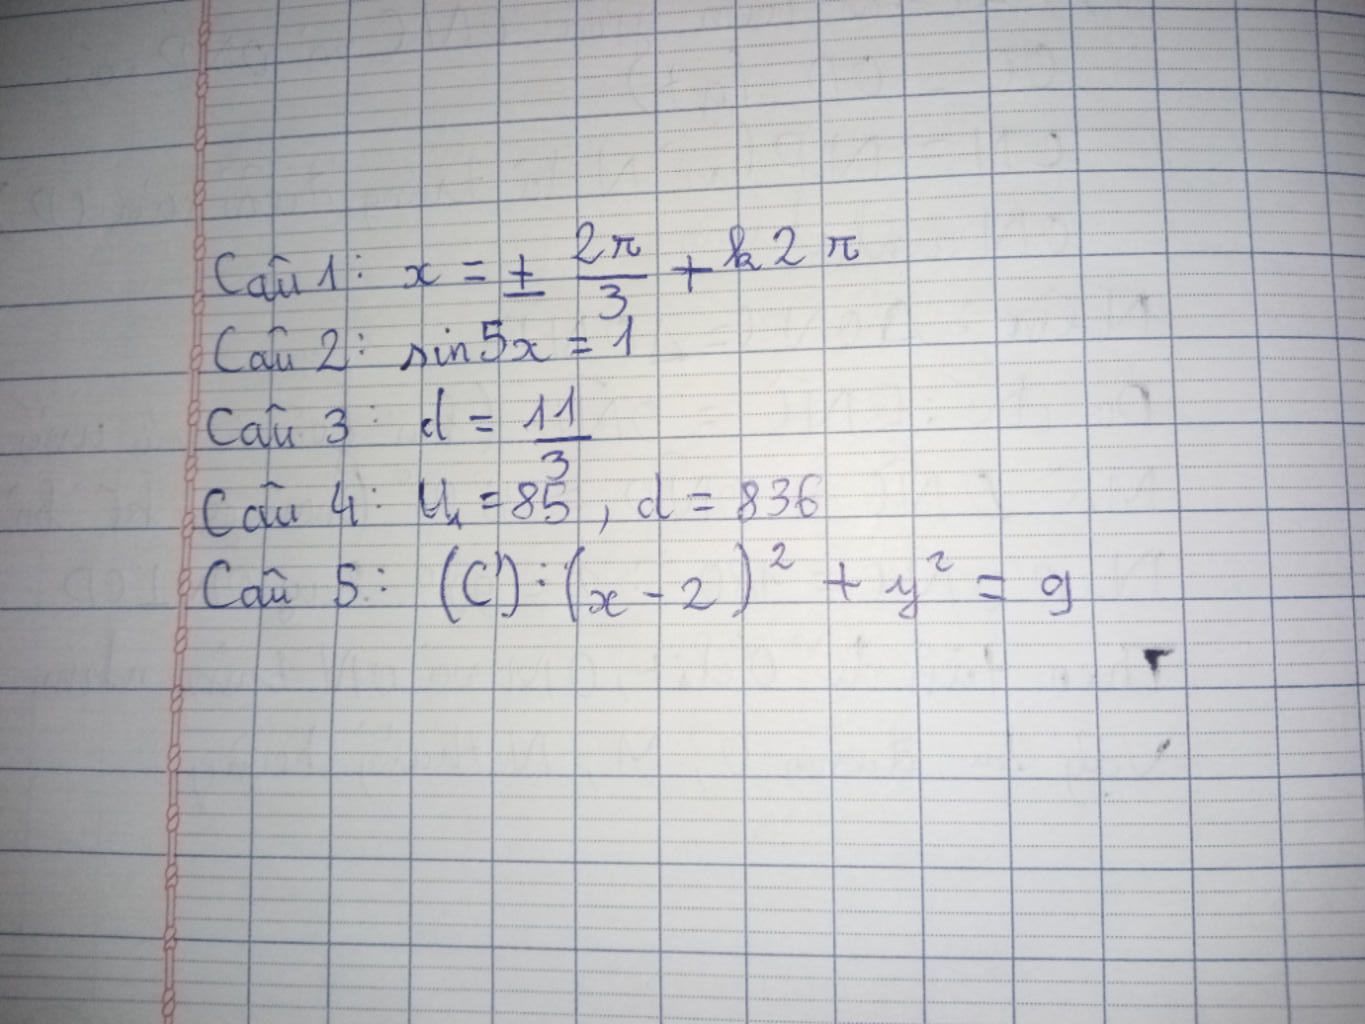 Câu 1: x = ± 2π/3 + k2π
Câu 2: sin5x = 1
Câu 3: d = 11/3
Câu 4: U₁ = 85, d = 836
Câu 5: (C'): (x - 2)² + y² = 9